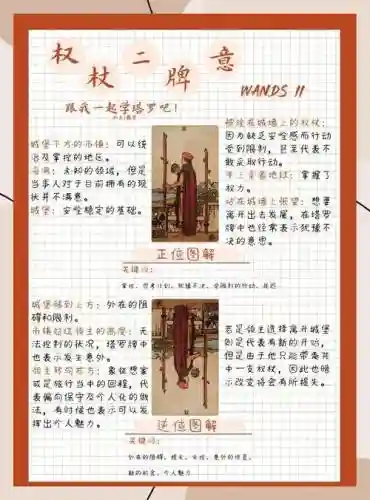 权杖二牌意
WANDS II
跟我一起学塔罗吧！
城堡下方的市镇：可以统
治及掌控的地区。
海洋：未知的领域，但是
当事人对于目前拥有的现
状并不满意。
城堡：安全稳定的基础。
被拴在城墙上的权杖：
因为缺乏安全感而行动
受到限制，甚至代表不
敢采取行动。
手上拿着地球：掌握了
权力。
站在城墙上张望：想要
离开出去发展，在塔罗
牌中也经常表示犹豫不
决的意思。
正位图解
关键词：
掌控、思考计划、犹豫不决、受限制的行动、
城堡移到上方：外在的阻
碍和限制。
市镇超过领主的高度：无
法控制的状况，塔罗牌中
也表示发生意外。
领主转向右方：象征想家
或是旅行当中的回程，代
表偏向保守及个人化的做
法，有时候也表示可以发
挥出个人魅力。
若是领主选择离开城堡
则是代表有新的开始，
但是由于他只能带走其
中一支权杖，因此也暗
示改变将会有所损失。
逆位图解
关键词：
外在的阻碍、损失、失控、意外的惊喜、
新的机会、个人魅力